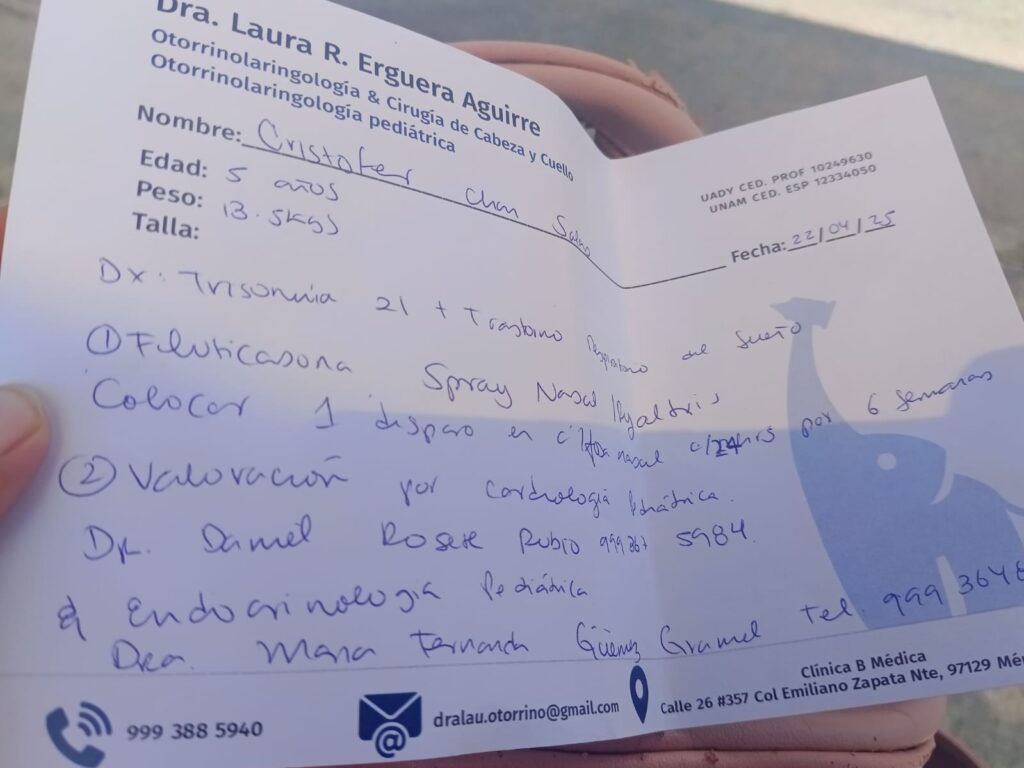 Dra. Laura R. Erguera Aguirre
Otorrinolaringología & Cirugía de Cabeza y Cuello
Otorrinolaringología pediátrica
UADY CED. PROF 10249630
UNAM CED. ESP 12334050
Nombre: Cristofer Chan
Edad: 5 años
Fecha: 22/04/25
Peso: 13.5kgs
Talla:
Dx: Trisomia 21 + Trastorno Respiratorio del Sueño
① Fluticasona Spray Nasal
Colocar 1 disparo en c/fosa nasal c/24hrs por 6 semanas
② Valoración por Cardiología Pediátrica.
Dr. Daniel Rosete Rubio 999 367 5984.
& Endocrinologia Pediátrica
Dra. Maria Fernanda Tel. 999 3648
999 388 5940
dralau.otorrino@gmail.com
Clínica B Médica
Calle 26 #357 Col Emiliano Zapata Nte, 97129 Mé